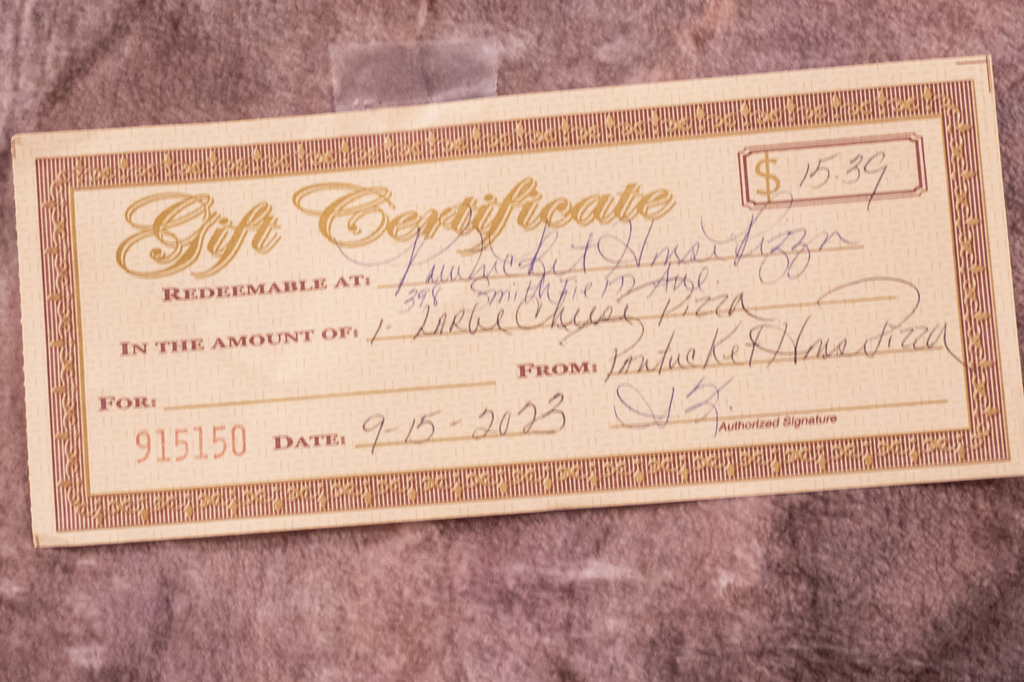 Gift Certificate
$ 15.39
REDEEMABLE AT: Pawtucket Hous Pizza
398 Smithfield Ave.
IN THE AMOUNT OF: 1- LARGE Cheese Pizza
FROM: Pawtucket Hous Pizza
FOR:
915150 DATE: 9-15-2023
Authorized Signature